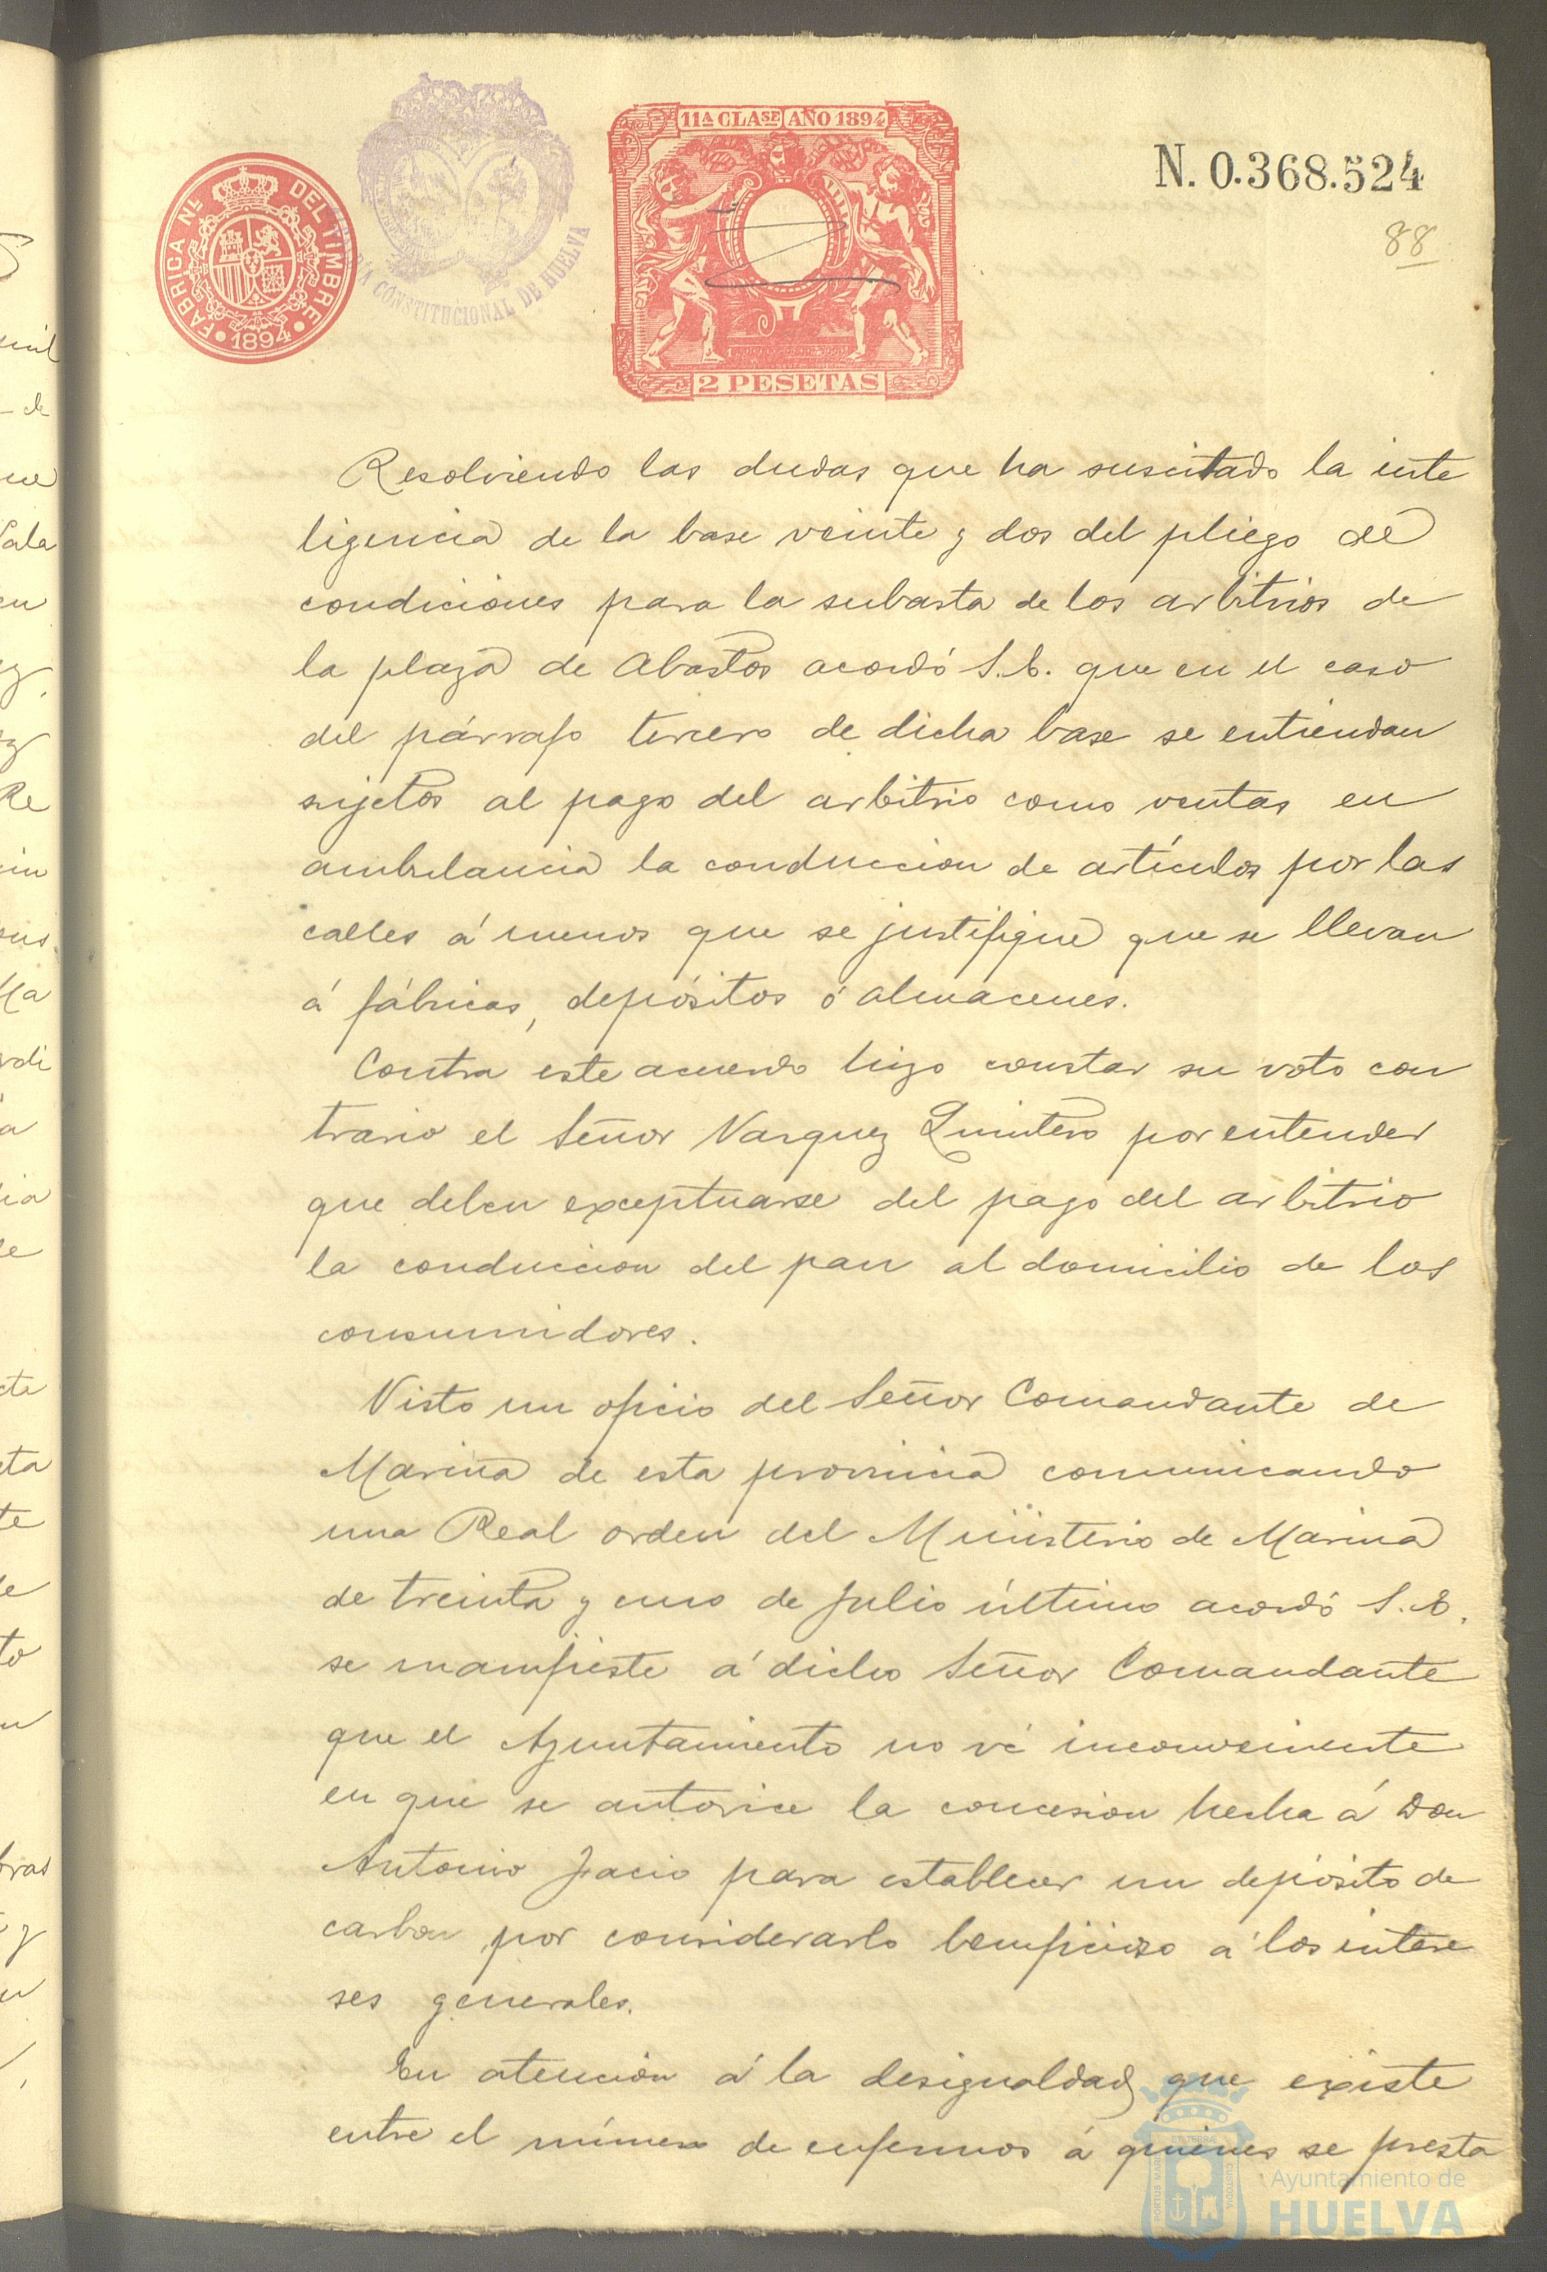 11ª CLASE AÑO 1894
N. 0.368.524
88
FABRICA Nᴸ DEL TIMBRE
1894
CONSTITUCIONAL DE HUELVA
2 PESETAS
Resolviendo las dudas que ha suscitado la inte
ligencia de la base veinte y dos del pliego de
condiciones para la subasta de los arbitrios de
la plaza de Abastos acordó S.E. que en el caso
del párrafo tercero de dicha base se entiendan
sujetos al pago del arbitrio como ventas en
ambulancia la conduccion de artículos por las
calles á menos que se justifique que se llevan
á fábricas, depósitos ó almacenes.
Contra este acuerdo hizo constar su voto con
trario el Señor Vazquez Quintero por entender
que deben exceptuarse del pago del arbitrio
la conduccion del pan al domicilio de los
consumidores.
Visto un oficio del Señor Comandante de
Marina de esta provincia comunicando
una Real orden del Ministerio de Marina
de treinta y uno de Julio último acordó S.E.
se manifieste á dicho Señor Comandante
que el Ayuntamiento no vé inconveniente
en que se autorice la concesion hecha á Don
Antonio Jacio para establecer un depósito de
carbon por considerarlo beneficioso á los intere
ses generales.
En atención á la desigualdad que existe
entre el número de enfermos á quienes se presta
Ayuntamiento de
HUELVA